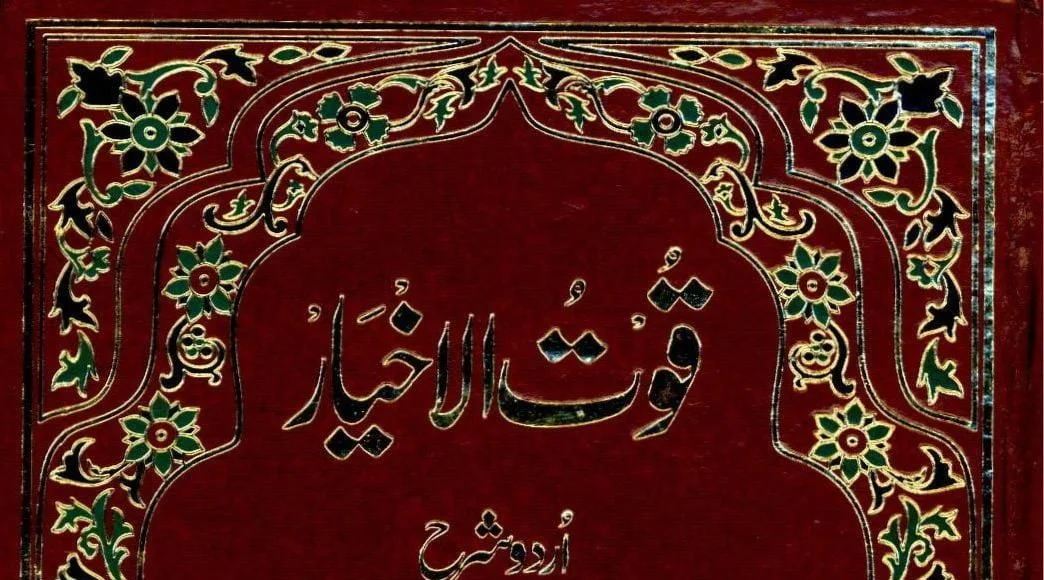 قُوتُ الاخْیَار
اُردو شرح